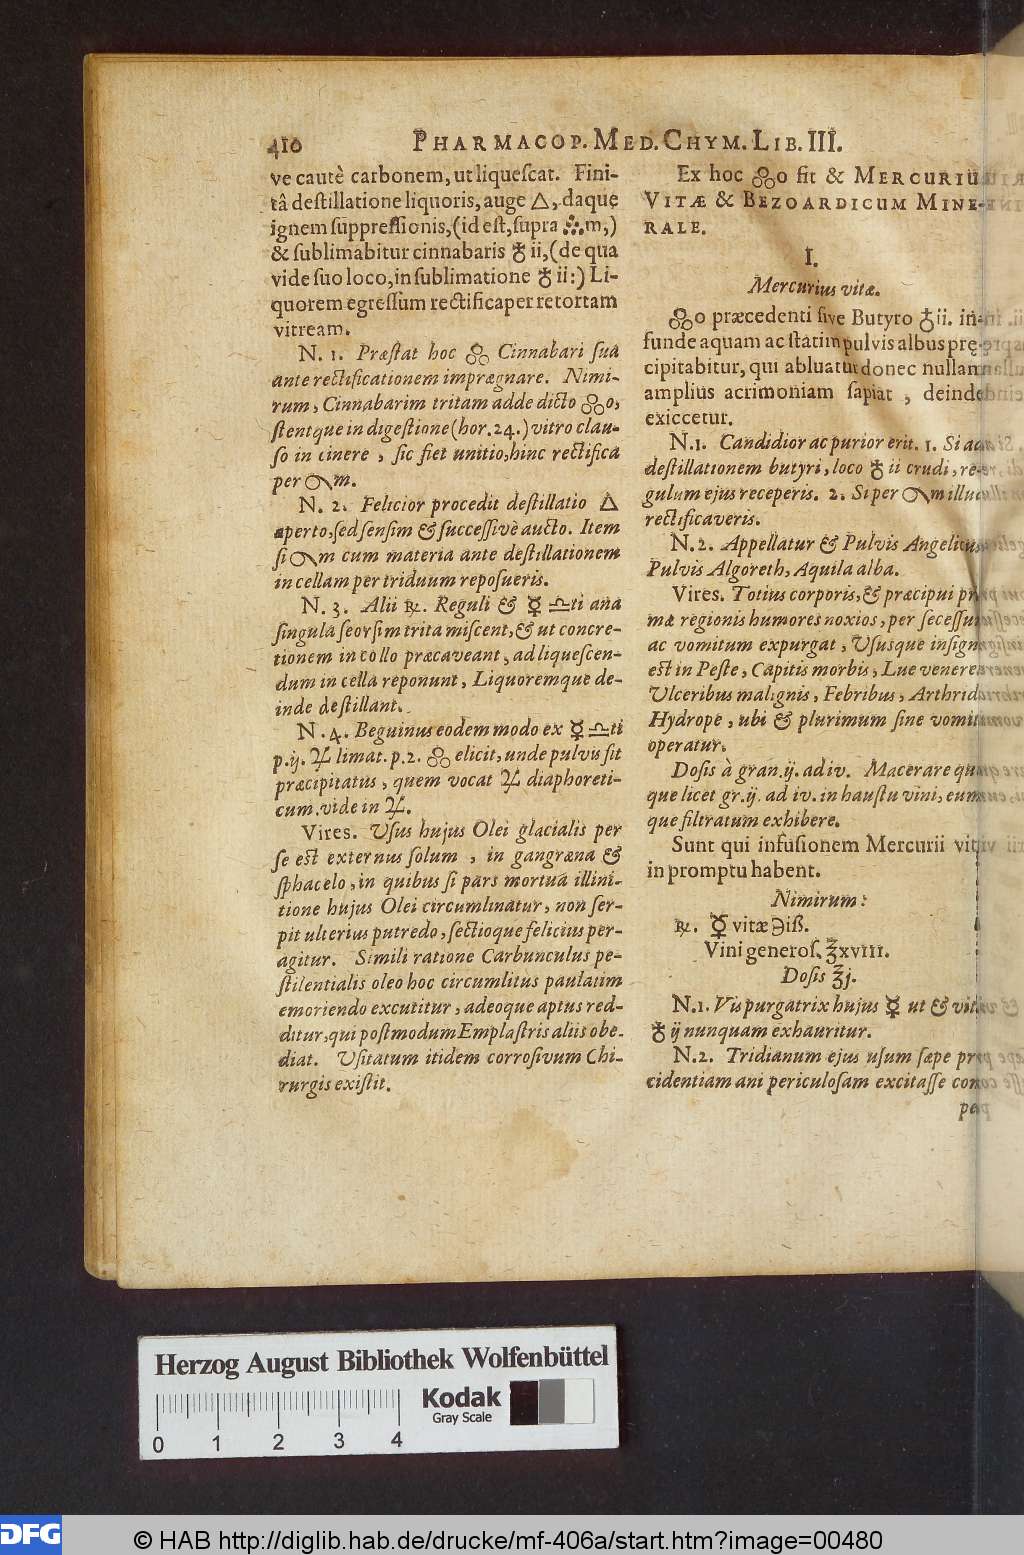 410 PHARMACOP. MED. CHYM. LIB. III.
ve cautè carbonem, ut liqueſcat. Fini-
tâ deſtillatione liquoris, auge 🜂, daque
ignem ſuppreſſionis, (id eſt, ſupra ஃm,)
& ſublimabitur cinnabaris ♁ ii, (de qua
vide ſuo loco, in ſublimatione ♁ ii:) Li-
quorem egreſſum rectifica per retortam
vitream.
N. 1. Præſtat hoc 🝆 Cinnabari ſuâ
ante rectificationem imprægnare. Nimi-
rum, Cinnabarim tritam adde dicto 🝆o,
ſtentque in digeſtione (hor. 24.) vitro clau-
ſo in cinere, ſic fiet unitio, hinc rectifica
per 🝭m.
N. 2. Felicior procedit deſtillatio 🜂
aperto, ſed ſenſim & ſucceſſivè aucto. Item
ſi 🝭m cum materia ante deſtillationem
in cellam per triduum repoſueris.
N. 3. Alii ℞. Reguli & ☿ ♎ti ana
ſingula ſeorſim trita miſcent, & ut concre-
tionem in collo præcaveant, ad liqueſcen-
dum in cella reponunt, Liquoremque de-
inde deſtillant.
N. 4. Beguinus eodem modo ex ☿ ♎ti
p. ij. ♃ limat. p. 2. 🝆 elicit, unde pulvis fit
præcipitatus, quem vocat ♃ diaphoreti-
cum. vide in ♃.
Vires. Uſus hujus Olei glacialis per
ſe eſt externus ſolum, in gangræna &
ſphacelo, in quibus ſi pars mortua illini-
tione hujus Olei circumlinatur, non ſer-
pit ulterius putredo, ſectioque felicius per-
agitur. Simili ratione Carbunculus pe-
ſtilentialis oleo hoc circumlitus paulatim
emoriendo excutitur, adeoque aptus red-
ditur, qui poſtmodum Emplaſtris aliis obe-
diat. Uſitatum itidem corroſivum Chi-
rurgis exiſtit.
Ex hoc 🝆o fit & MERCURIU
VITÆ & BEZOARDICUM MINE-
RALE.
I.
Mercurius vitæ.
🝆o præcedenti ſive Butyro ♁ii. in-
funde aquam ac ſtatim pulvis albus prę-
cipitabitur, qui abluatur donec nullam
amplius acrimoniam ſapiat, deinde
exiccetur.
N. 1. Candidior ac purior erit. 1. Si ad
deſtillationem butyri, loco ♁ ii crudi, re-
gulum ejus receperis. 2. Si per 🝭m illud
rectificaveris.
N. 2. Appellatur & Pulvis Angelicus,
Pulvis Algoreth, Aquila alba.
Vires. Totius corporis, & præcipui pri-
mæ regionis humores noxios, per ſeceſſum
ac vomitum expurgat, Uſusque inſignis
eſt in Peſte, Capitis morbis, Lue venerea
Ulceribus malignis, Febribus, Arthrid
Hydrope, ubi & plurimum ſine vomitu
operatur.
Doſis à gran. ij. ad iv. Macerare quo-
que licet gr. ij. ad iv. in hauſtu vini, eum-
que filtratum exhibere.
Sunt qui infuſionem Mercurii vitæ
in promptu habent.
Nimirum:
℞. ☿ vitæ ℈iß.
Vini generoſ. ℥xviii.
Doſis ℥j.
N. 1. Vis purgatrix hujus ☿ ut & vitri
♁ ij nunquam exhauritur.
N. 2. Tridianum ejus uſum ſæpe pro-
cidentiam ani periculoſam excitaſſe com-
per
Herzog August Bibliothek Wolfenbüttel
Kodak
Gray Scale
0 1 2 3 4
DFG © HAB http://diglib.hab.de/drucke/mf-406a/start.htm?image=00480